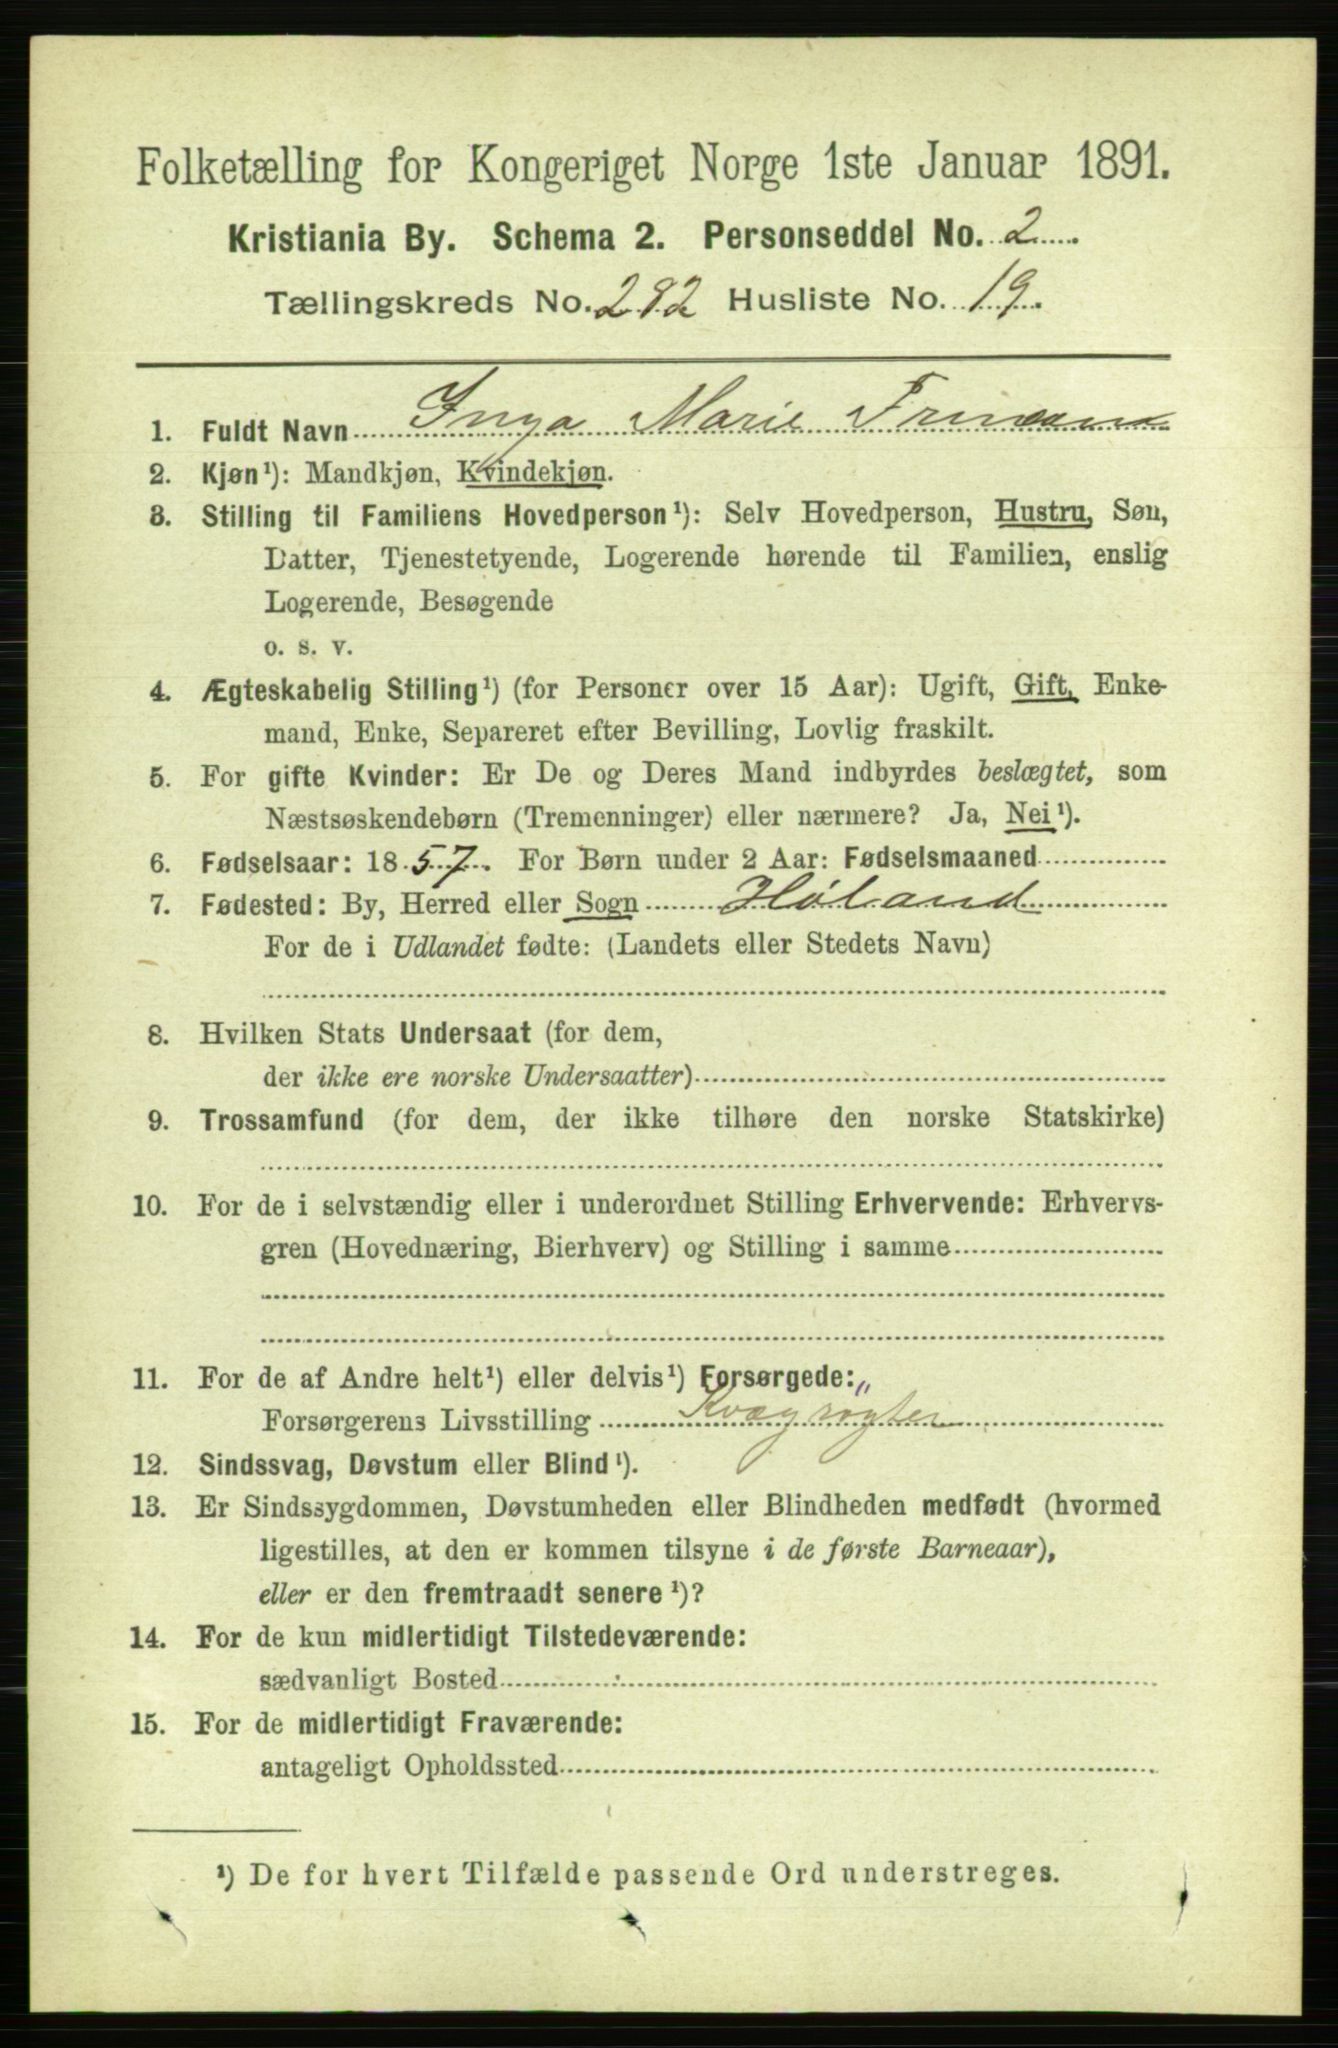 Folketælling for Kongeriget Norge 1ste Januar 1891.
Kristiania By. Schema 2. Personseddel No. 2
Tællingskreds No. 282 Husliste No. 19.
1. Fuldt Navn Inga Marie
2. Kjøn¹): Mandkjøn, Kvindekjøn.
3. Stilling til Familiens Hovedperson¹): Selv Hovedperson, Hustru, Søn,
Datter, Tjenestetyende, Logerende hørende til Familien, enslig
Logerende, Besøgende
o. s. v.
4. Ægteskabelig Stilling¹) (for Personer over 15 Aar): Ugift, Gift, Enke-
mand, Enke, Separeret efter Bevilling, Lovlig fraskilt.
5. For gifte Kvinder: Er De og Deres Mand indbyrdes beslægtet, som
Næstsøskendebørn (Tremenninger) eller nærmere? Ja, Nei¹).
6. Fødselsaar: 1857. For Børn under 2 Aar: Fødselsmaaned
7. Fødested: By, Herred eller Sogn Høland
For de i Udlandet fødte: (Landets eller Stedets Navn)
8. Hvilken Stats Undersaat (for dem,
der ikke ere norske Undersaatter)
9. Trossamfund (for dem, der ikke tilhøre den norske Statskirke)
10. For de i selvstændig eller i underordnet Stilling Erhvervende: Erhvervs-
gren (Hovednæring, Bierhverv) og Stilling i samme
11. For de af Andre helt¹) eller delvis¹) Forsørgede: „
Forsørgerens Livsstilling Kvægrøgter
12. Sindssvag, Døvstum eller Blind¹).
13. Er Sindssygdommen, Døvstumheden eller Blindheden medfødt (hvormed
ligestilles, at den er kommen tilsyne i de første Barneaar),
eller er den fremtraadt senere¹)?
14. For de kun midlertidigt Tilstedeværende:
sædvanligt Bosted
15. For de midlertidigt Fraværende:
antageligt Opholdssted
¹) De for hvert Tilfælde passende Ord understreges.